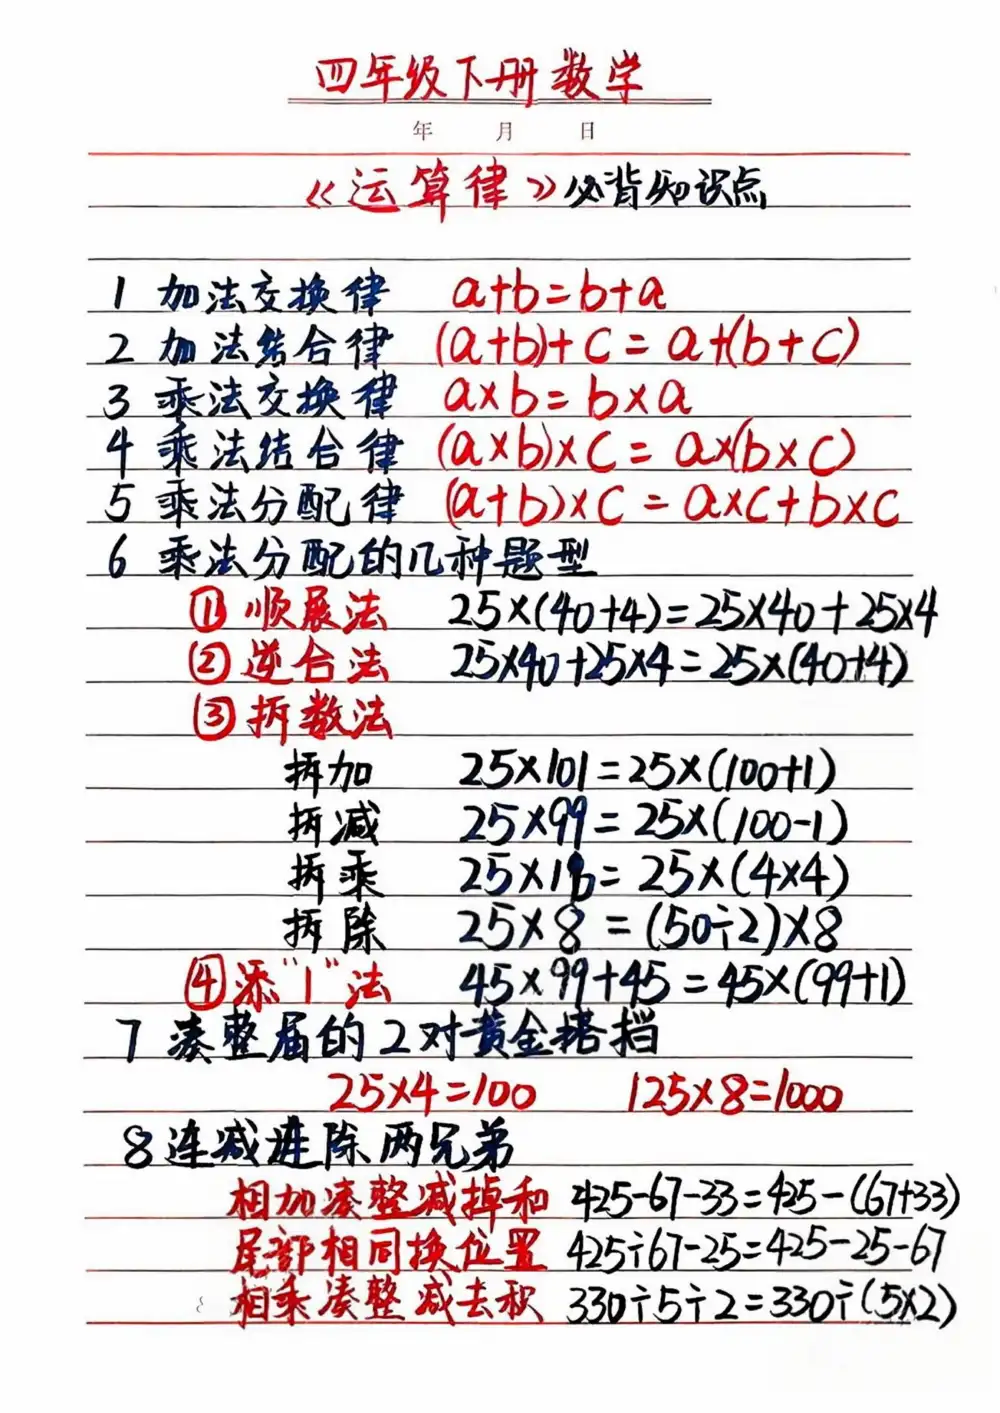 四年级下册数学
年 月 日
《运算律》必背知识点
1 加法交换律 a+b=b+a
2 加法结合律 (a+b)+c=a+(b+c)
3 乘法交换律 a×b=b×a
4 乘法结合律 (a×b)×c=a×(b×c)
5 乘法分配律 (a+b)×c=a×c+b×c
6 乘法分配的几种题型
① 顺展法 25×(40+4)=25×40+25×4
② 逆合法 25×40+25×4=25×(40+4)
③ 拆数法
拆加 25×101=25×(100+1)
拆减 25×99=25×(100-1)
拆乘 25×16=25×(4×4)
拆除 25×8=(50÷2)×8
④ 添"1"法 45×99+45=45×(99+1)
7 凑整届的2对黄金搭挡
25×4=100 125×8=1000
8 连减连除两兄弟
相加凑整减掉和 425-67-33=425-(67+33)
尾部相同换位置 425÷67-25=425-25-67
相乘凑整减去积 330÷5÷2=330÷(5×2)